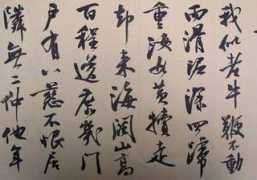 我似老牛鞭不動
雨滑泥深四蹄
重汝如黃犢走
却來海闊山高
百程送庶幾門
戶有八慈不恨居
隣無二仲他年